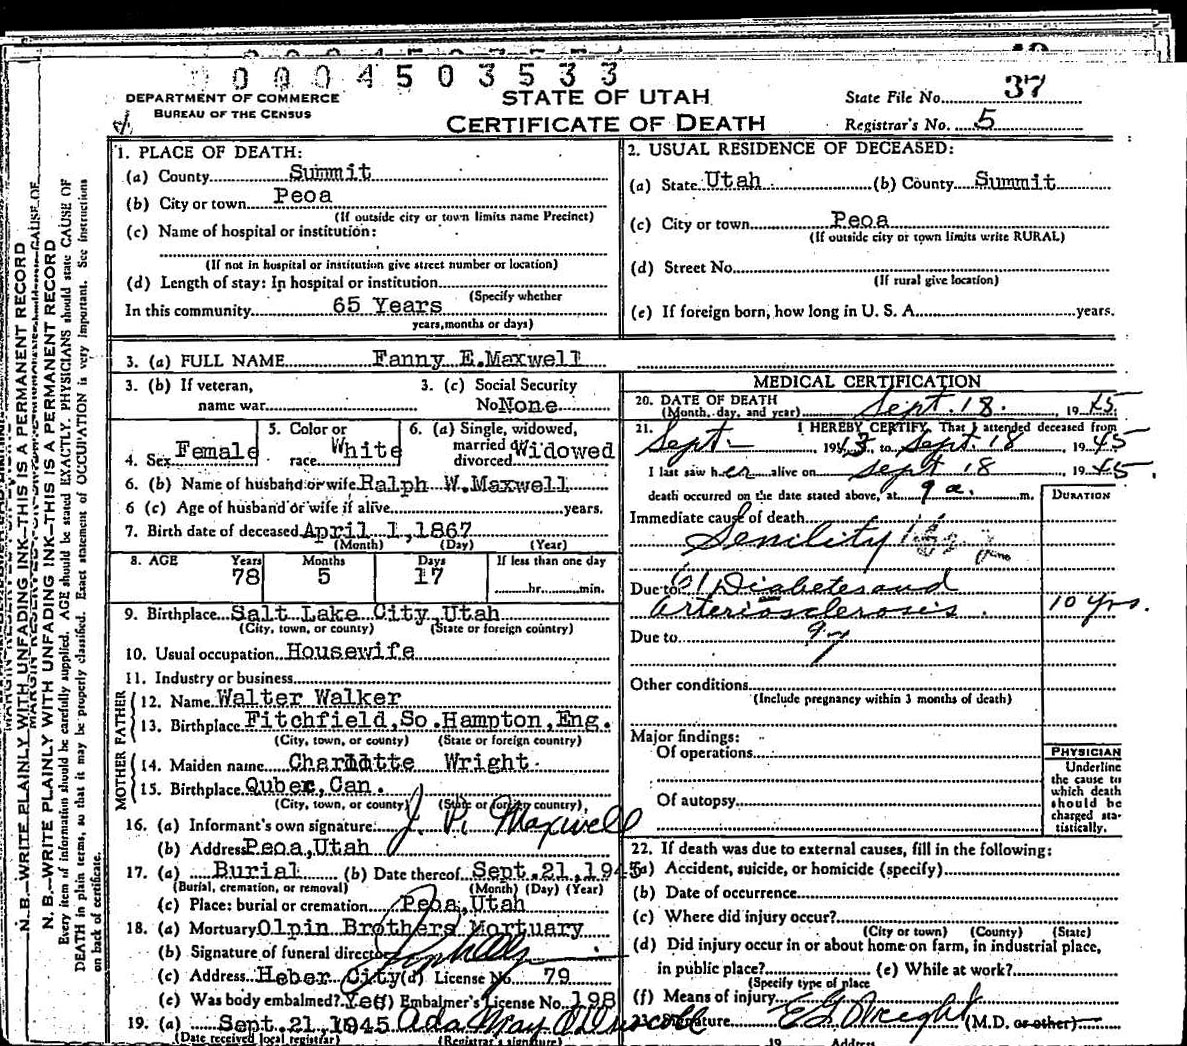 0 0 0 4 5 0 3 5 3 3
DEPARTMENT OF COMMERCE
BUREAU OF THE CENSUS
STATE OF UTAH
CERTIFICATE OF DEATH
State File No. 37
Registrar's No. 5
1. PLACE OF DEATH:
(a) County Summit
(b) City or town Peoa
(If outside city or town limits name Precinct)
(c) Name of hospital or institution:
(If not in hospital or institution give street number or location)
(d) Length of stay: In hospital or institution
(Specify whether
In this community 65 Years
years, months or days)
2. USUAL RESIDENCE OF DECEASED:
(a) State Utah (b) County Summit
(c) City or town Peoa
(If outside city or town limits write RURAL)
(d) Street No.
(If rural give location)
(e) If foreign born, how long in U. S. A. years.
3. (a) FULL NAME Fanny E.Maxwell
3. (b) If veteran, 3. (c) Social Security
name war No None
4. Sex Female 5. Color or race White 6. (a) Single, widowed, married or divorced Widowed
6. (b) Name of husband or wife Ralph W.Maxwell
6 (c) Age of husband or wife if alive years.
7. Birth date of deceased April 1,1867
(Month) (Day) (Year)
8. AGE Years Months Days If less than one day
78 5 17 hr. min.
9. Birthplace Salt Lake City,Utah
(City, town, or county) (State or foreign country)
10. Usual occupation Housewife
11. Industry or business
FATHER
12. Name Walter Walker
13. Birthplace Fitchfield,So.Hampton,Eng.
(City, town, or county) (State or foreign country)
MOTHER
14. Maiden name Charlotte Wright
15. Birthplace Qubec,Can.
(City, town, or county) (State or foreign country)
16. (a) Informant's own signature J. P. Maxwell
(b) Address Peoa,Utah
17. (a) Burial (b) Date thereof Sept.21,1945
(Burial, cremation, or removal) (Month) (Day) (Year)
(c) Place: burial or cremation Peoa,Utah
18. (a) Mortuary Olpin Brothers Mortuary
(b) Signature of funeral director
(c) Address Heber City (d) License No. 79
(e) Was body embalmed? Yes Embalmer's License No. 198
19. (a) Sept.21,1945 Ada May
(Date received local registrar) (Registrar's signature)
MEDICAL CERTIFICATION
20. DATE OF DEATH
(Month, day, and year) Sept. 18. , 1945
21. I HEREBY CERTIFY, That I attended deceased from
Sept- 1943, to Sept. 18 1945
I last saw her alive on Sept 18 1945.
death occurred on the date stated above, at 9 a. m.
DURATION
Immediate cause of death
Senility
Due to 61 Diabetes and
Arteriosclerosis. 10 yrs.
Due to
Other conditions
(Include pregnancy within 3 months of death)
Major findings:
Of operations
Of autopsy
PHYSICIAN
Underline
the cause to
which death
should be
charged sta-
tistically.
22. If death was due to external causes, fill in the following:
(a) Accident, suicide, or homicide (specify)
(b) Date of occurrence
(c) Where did injury occur?
(City or town) (County) (State)
(d) Did injury occur in or about home on farm, in industrial place,
in public place? (e) While at work?
(Specify type of place
(f) Means of injury
23. Signature E G Wright (M.D. or other)
19 Address
N. B.—WRITE PLAINLY WITH UNFADING INK—THIS IS A PERMANENT RECORD
N. B.—WRITE PLAINLY WITH UNFADING INK—THIS IS A PERMANENT RECORD
Every item of information should be carefully supplied. AGE should be stated EXACTLY. PHYSICIANS should state CAUSE OF
DEATH in plain terms, so that it may be properly classified. Exact statement of OCCUPATION is very important. See instructions
on back of certificate.